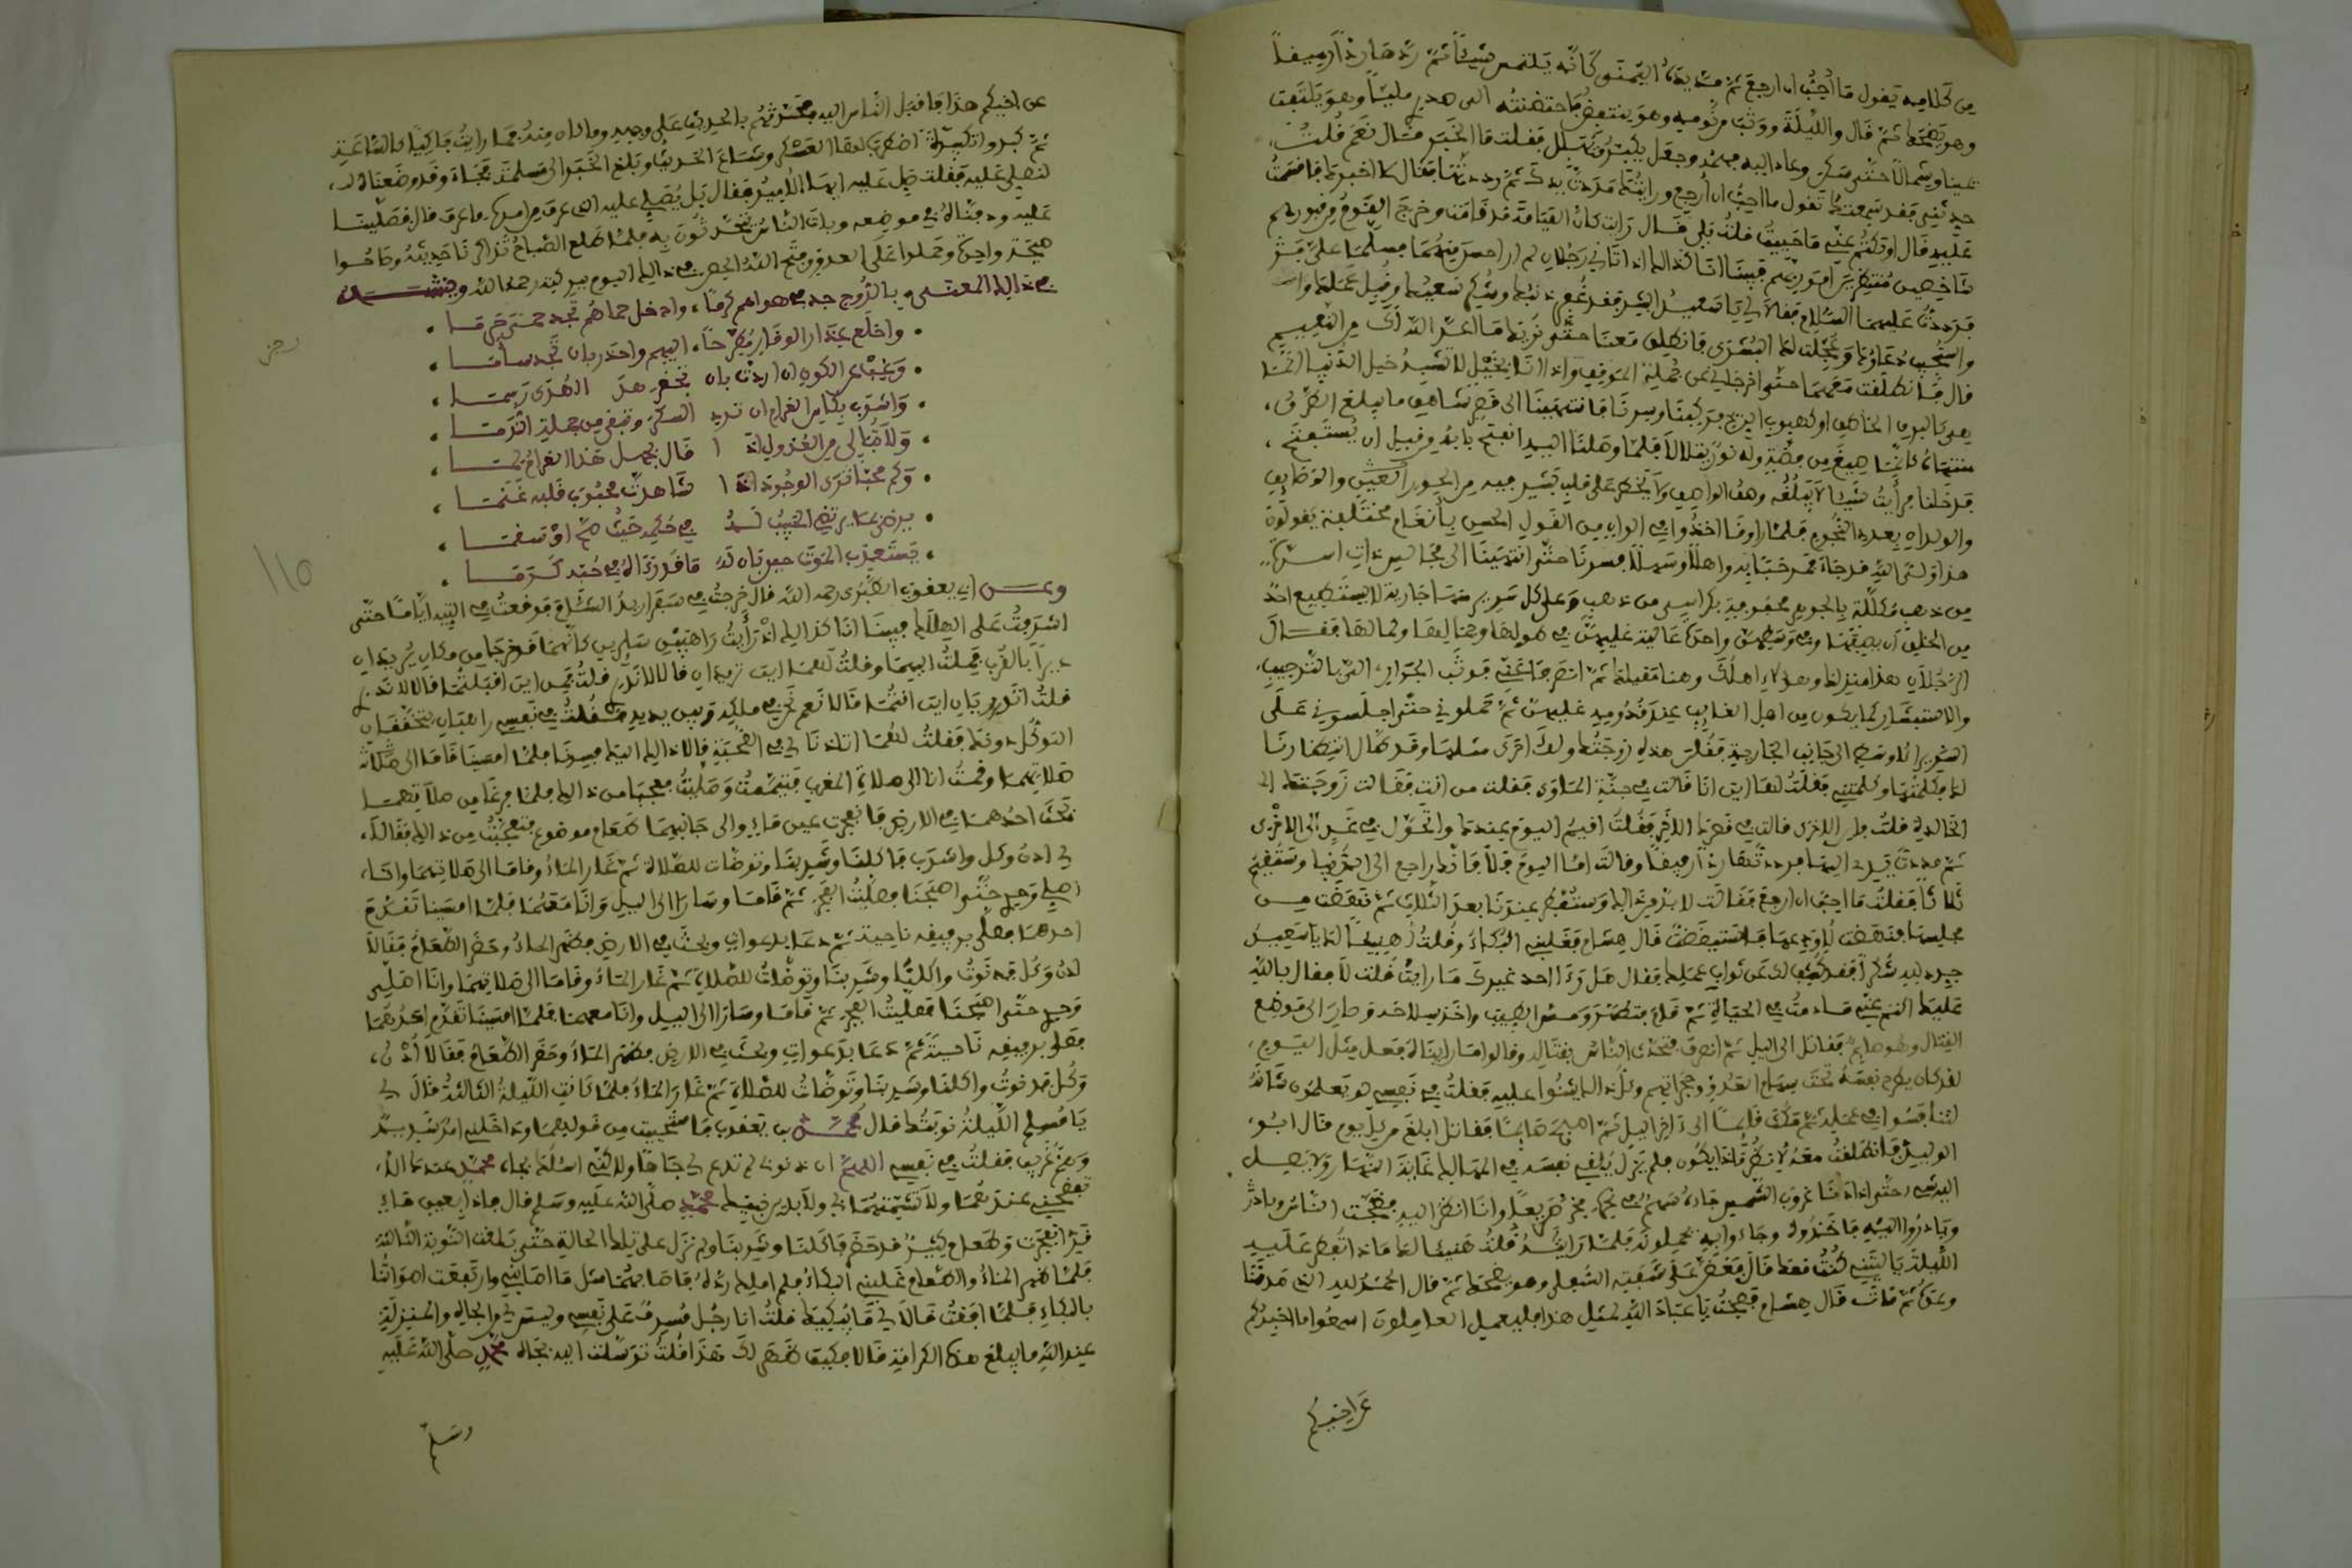 من كلامه يقول ما أحب ان ارجع ثم مد يده اليمنى كانه يلتمس شيئا ثم ردها ردا رفيقا
وهو يضحك ثم قال والليلة ووثب من نومه وهو ينتفض فاحتضنته الى صدري مليا وهو يلتفت
يمينا وشمالا حتى سكن وعاد اليه فهمه وجعل يكبر ويهلل فقلت ما الخبر فقال نعم قلت
حدثني فقد سمعتك تقول ما احب ان ارجع ورايتك مددت يدك ثم رددتها فقال لا اخبرك فاقسمت
عليه قال او تكتم عني ما حييت قلت بلى قال رايت كان القيامة قد قامت وخرج القوم من قبورهم
شاخصين منتظرين امر ربهم فبينا انا كذلك اذ اتاني رجلان لم ار احسن منهما فسلما علي
فرددت عليهما السلام فقالا لي يا سعيد ابشر فقد غفر ذنبك وشكر سعيك وقبل عملك
واستجيب دعاؤك وعجلت لك البشرى فانطلق معنا حتى نريك ما اعد الله لك من النعيم
قال فانطلقت معهما حتى اخرجاني عن جملة الموقف واذا انا بخيل لا تشبه خيل الدنيا انما
هي كالبرق الخاطف او كهبوب الريح فركبنا وسرنا فانتهينا الى قصر شاهق ما يبلغ الطرف
منتهاه كانما صيغ من فضة وله نور يتلالا فلما وصلنا اليه انفتح بابه من قبل ان يستفتح
فدخلنا فرأيت شيئا لا يبلغه وصف الواصف ولا يخطر على قلب بشر فيه من الحور العين والوصائف
والولدان بعدد النجوم فلما راونا اخذوا في الوان من القول الحسن بأنغام مختلفة يقولون
هذا ولي الله قد جاء مرحبا به واهلا وسهلا فسرنا حتى انتهينا الى مجالس ذات اسرة
من ذهب مكللة بالجوهر محفوفة بكراسي من ذهب وعلى كل سرير منها جارية لا يستطيع احد
من الخلق ان يصفها وفي وسطهن واحدة عالية عليهن في طولها وجمالها وكمالها فقال
الرجلان هذا منزلك وهؤلاء اهلك وهنا مقيلك ثم انصرفا عني فوثب الجواري الي بالترحيب
والاستبشار كما يكون من اهل الغائب عند قدومه عليهن ثم حملوني حتى اجلسوني على
السرير الاوسط الى جانب الجارية فقلن هذه زوجتك ولك اخرى مثلها وقد طال انتظارنا
لك فكلمتها وكلمتني فقلت لها اين انا قالت في جنة المأوى فقلت من انت فقالت زوجتك
الخالدة قلت واين الاخرى قالت في قصرك الاخر فقلت اقيم اليوم عندك واتحول في غد الى الاخرى
ثم مددت يدي اليها فردتها ردا رفيقا وقالت اما اليوم فلا فانك راجع الى الدنيا وستقيم
ثلاثا فقلت ما احب ان ارجع فقالت لا بد من ذلك وستفطر عندنا بعد الثلاث ثم نهضت من
مجلسها فنهضت لوداعها فاستيقظت قال هشام فغلبني البكاء وقلت هنيئا لك يا سعيد
جدد لله شكرا فقد كشف لك عن ثواب عملك فقال هل رءا احد غيرك ما رايت قلت لا فقال بالله
عليك اكتم عني ما دمت في الحياة ثم قام فتطهر ومس الطيب واخذ سلاحه وصار الى موضع
القتال وهو صائم فقاتل الى الليل ثم انصرف فتحدث الناس بقتاله وقالوا ما راينا له فعل مثل اليوم
لقد كان يطرح نفسه تحت سهام العدو وحجارتهم وكل ذلك ينبوا عليه فقلت في نفسي لو تعلمون شانه
لتنافسوا في عمله ثم مكث قائما الى اخر الليل ثم اصبح صائما فقاتل ابلغ من كل يوم قال ابو
الوليد فانطلقت معه لانظر ماذا يكون فلم يزل يلقي نفسه في المهالك غاية النهار ولا يصل
اليه شيء حتى اذا دنا غروب الشمس جاءه سهم في نحره فخر صريعا وانا انظر اليه فضجت الناس وبادر
وبادروا اليه فاخذوه وجاءوا به يحملونه فلما رايته قلت هنيئا لك ما ذا تفطر عليه
الليلة يا ليتني كنت معك قال فعض على شفته السفلى وهو يضحك ثم قال الحمد لله الذي صدقنا
وعده ثم مات قال هشام فصحت يا عباد الله لمثل هذا فليعمل العاملون اسمعوا ما اخبركم
عن اخيكم
عن اخيكم هذا فاقبل الناس اليه فحدثتهم بالحديث على وجهه وما كان منه فما رايت باكيا كالساعة
ثم كبروا تكبيرة اضطرب لها العسكر وشاع الحديث وبلغ الخبر الى مسلمة فجاء وقد وضعناه
لنصلي عليه فقلت صل عليه ايها الامير فقال بل يصلي عليه الذي عرف من امره ما عرف قال فصلينا
عليه ودفناه في موضعه وبات الناس يتحدثون به فلما طلع الصباح تذاكرنا حديثه وصاحوا
صيحة واحدة وحملوا على العدو ففتح الله الحصن في ذلك اليوم ببركته رحمه الله وينشد
في ذلك المعنى وبالروح جد في هواهم كرما، وادخل حماهم تجد حمى حرما
واخلع عذار الوقار مطرحا، اليهم واحذر بان تجد ساما
وغب عن الكون ان اردت بان تحضر هذا الهدى
واشرب بكاس الغرام ان ترد السكر وتنفى من جملة الندما
ولا تبالي من العذول اذا قال بجهل هذا الغرام لما
وكم محبا ترى الوجود اذا شاهدت محبوب قلبه غنما
يرضى بما يرتضي الحبيب له في حكمه حيث صح او سقما
يستعذب الموت حين بان له ما قد رءاه في حبه كرما
رحمن
١١٥
وعن ابي يعقوب الطبري رحمه الله قال خرجت في سفر اريد الشام فوقعت في التيه اياما حتى
اشرفت على الهلاك فبينا انا كذلك اذ رأيت راهبين سايرين كانهما خرجا من مكان يريدان
ديرا بالقرب فملت اليهما وقلت لهما اين تريدان قالا لا ندري قلت فمن اين اقبلتما قالا لا ندري
قلت اتدريان اين انتما قالا نعم نحن في ملكه وبين يديه فقلت في نفسي راهبان يتحققان
التوكل دونك فقلت لهما اتاذنا لي في الصحبة قالا ذلك اليك فسرنا فلما امسينا قاما الى صلاتهما
صلاتهما وقمت انا الى صلاة المغرب فتيممت وصليت فعجبا من ذلك فلما فرغا من صلاتهما
بحث احدهما في الارض فانفجرت عين ماء والى جانبهما طعام موضوع فتعجبت من ذلك فقالا
لي ادن وكل واشرب فاكلنا وشربنا وتوضات للصلاة ثم غار الماء وقاما الى صلاتهما وانا
اصلي وحدي حتى اصبحنا فصليت الفجر ثم قاما وسارا الى الليل وانا معهما فلما امسينا تقدم
احدهما فصلى برفيقه ناحية ثم دعا بدعوات وبحث في الارض فظهر الماء وحضر الطعام فقالا
ادن وكل فدنوت واكلنا وشربنا وتوضات للصلاة ثم غار الماء وقاما الى صلاتهما وانا اصلي
وحدي حتى اصبحنا فصليت الفجر ثم قاما وسارا الى الليل وانا معهما فلما امسينا تقدم احدهما
فصلى برفيقه ناحية ثم دعا بدعوات وبحث في الارض فظهر الماء وحضر الطعام فقالا ادن
وكل فدنوت واكلنا وشربنا وتوضات للصلاة ثم غار الماء فلما كانت الليلة الثالثة قال لي
يا مسلم الليلة نوبتك قال محمد بن يعقوب فاستحييت من قولهما وداخلني امر شديد
وهم غريب فقلت في نفسي اللهم ان ذنوبي لم تدع لي جاها ولاكني اسئلك بجاه محمد عندك الا
تفضحني عندهما ولا تشمتهما بي ولا بدين نبيك محمد صلى الله عليه وسلم قال فاذا بعين ماء
قد انفجرت وطعام كثير قد حضر فاكلنا وشربنا ولم نزل على تلك الحالة حتى بلغت النوبة الثالثة
فلما ظهر الماء والطعام غلبني البكاء فلم املك رده فاصابهما مثل ما اصابني وارتفعت اصواتنا
بالبكاء فلما افقت قالا لي ما يبكيك قلت انا رجل مسرف على نفسي وليس لي من الجاه والمنزلة
عند الله ما يبلغ هذه الكرامة قالا فكيف ظهر لك هذا قلت توسلت اليه بجاه محمد صلى الله عليه
وسلم